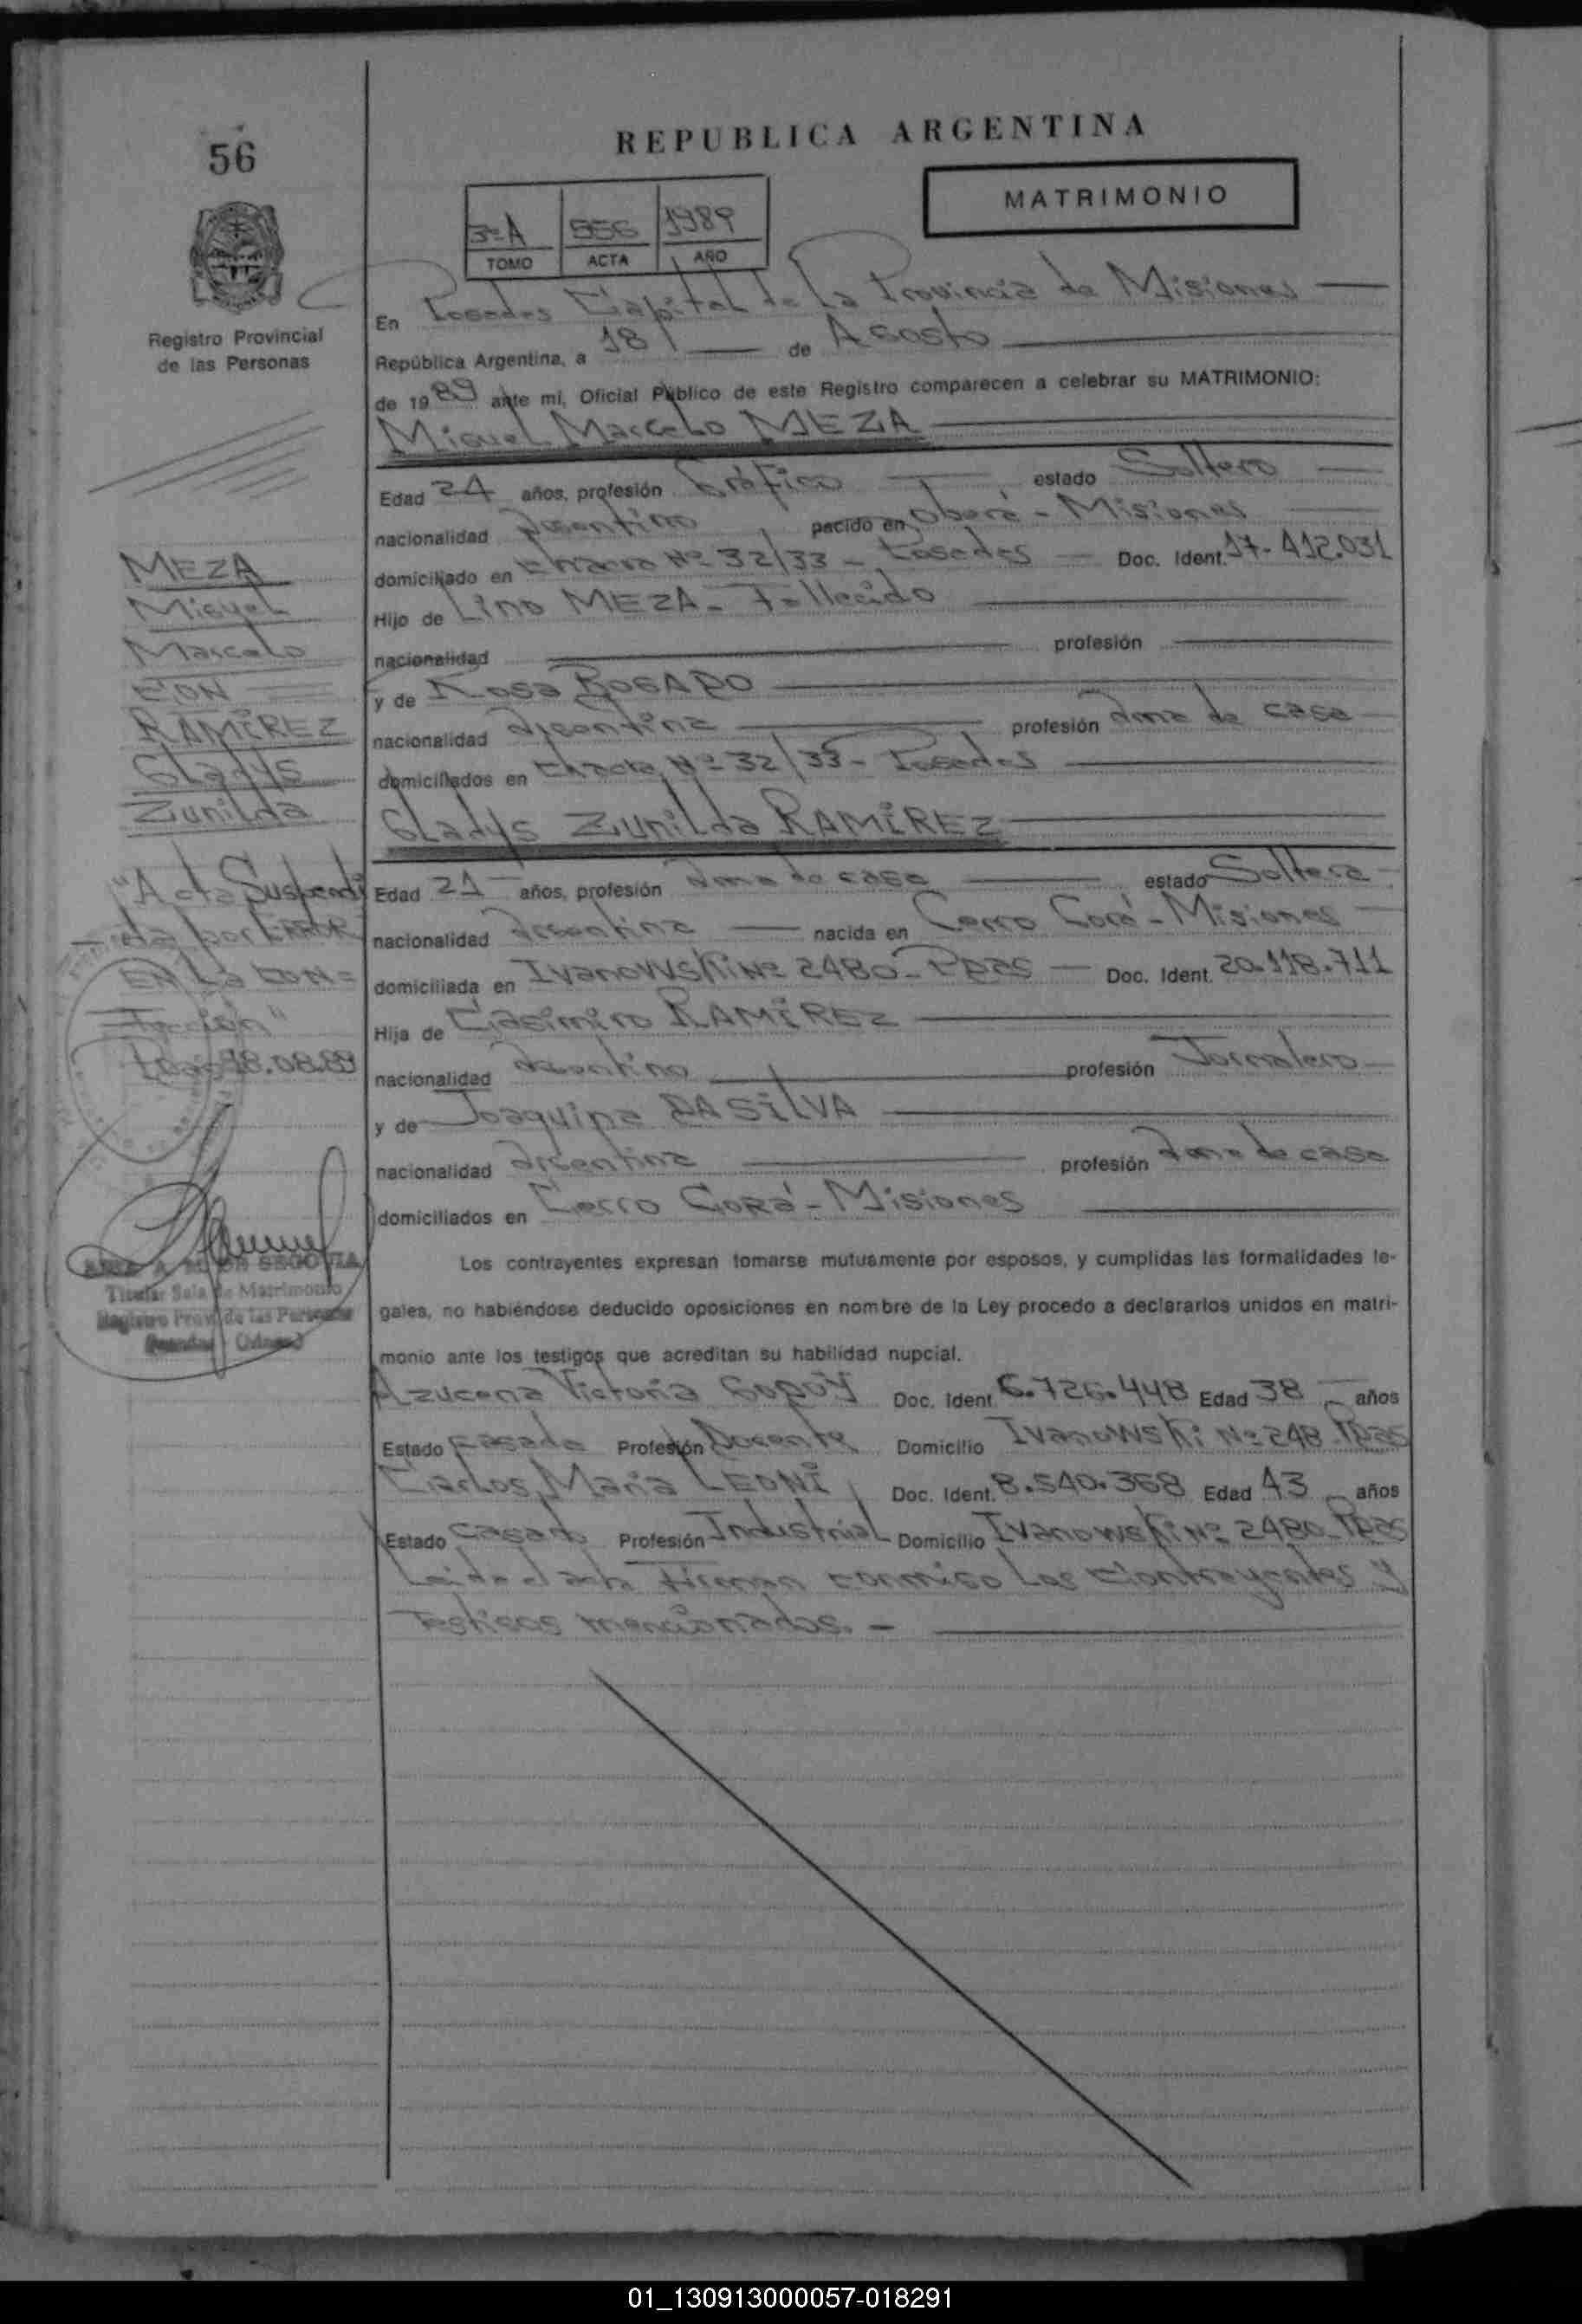 56
REPUBLICA ARGENTINA
MATRIMONIO
3ºA 556 1989
TOMO ACTA AÑO
Registro Provincial
de las Personas
En Posadas Capital de la Provincia de Misiones
República Argentina, a 18 de Agosto
de 1989 ante mi, Oficial Público de este Registro comparecen a celebrar su MATRIMONIO:
Miguel Marcelo MEZA
Edad 24 años, profesión Gráfico estado Soltero
nacionalidad Argentino nacido en Oberá - Misiones
domiciliado en Chacra Nº 32/33 - Posadas Doc. Ident. 17.412.031
Hijo de Lino MEZA - Fallecido
nacionalidad profesión
y de Rosa
nacionalidad Argentina profesión Ama de casa
domiciliados en Chacra Nº 32/33 - Posadas
Gladys Zunilda RAMIREZ
Edad 21 años, profesión Ama de casa estado Soltera
nacionalidad Argentina nacida en Cerro Corá - Misiones
domiciliada en Ivanowski Nº 2480 - Pdas Doc. Ident. 20.118.711
Hija de Casimiro RAMIREZ
nacionalidad Argentino profesión Jornalero
y de Joaquina DASILVA
nacionalidad Argentina profesión Ama de casa
domiciliados en Cerro Corá - Misiones
Los contrayentes expresan tomarse mutuamente por esposos, y cumplidas las formalidades le-
gales, no habiéndose deducido oposiciones en nombre de la Ley procedo a declararlos unidos en matri-
monio ante los testigos que acreditan su habilidad nupcial.
Azucena Victoria GODOY Doc. Ident. 6.726.448 Edad 38 años
Estado Casada Profesión Docente Domicilio Ivanowski Nº 248 Pdas
Carlos María LEONI Doc. Ident. 8.540.368 Edad 43 años
Estado Casado Profesión Industrial Domicilio Ivanowski Nº 2480 - Pdas
Leída el acta Firman conmigo Los Contrayentes y
Testigos mencionados. -
MEZA
Miguel
Marcelo
CON
RAMIREZ
Gladys
Zunilda
"Acta Suspendi
por ERROR
EN La CON=
fección"
Pdas 18.08.89
SEGOVIA
Titular Sala de Matrimonio
Registro Prov. de las Personas
Posadas (Mnes)
01_130913000057-018291